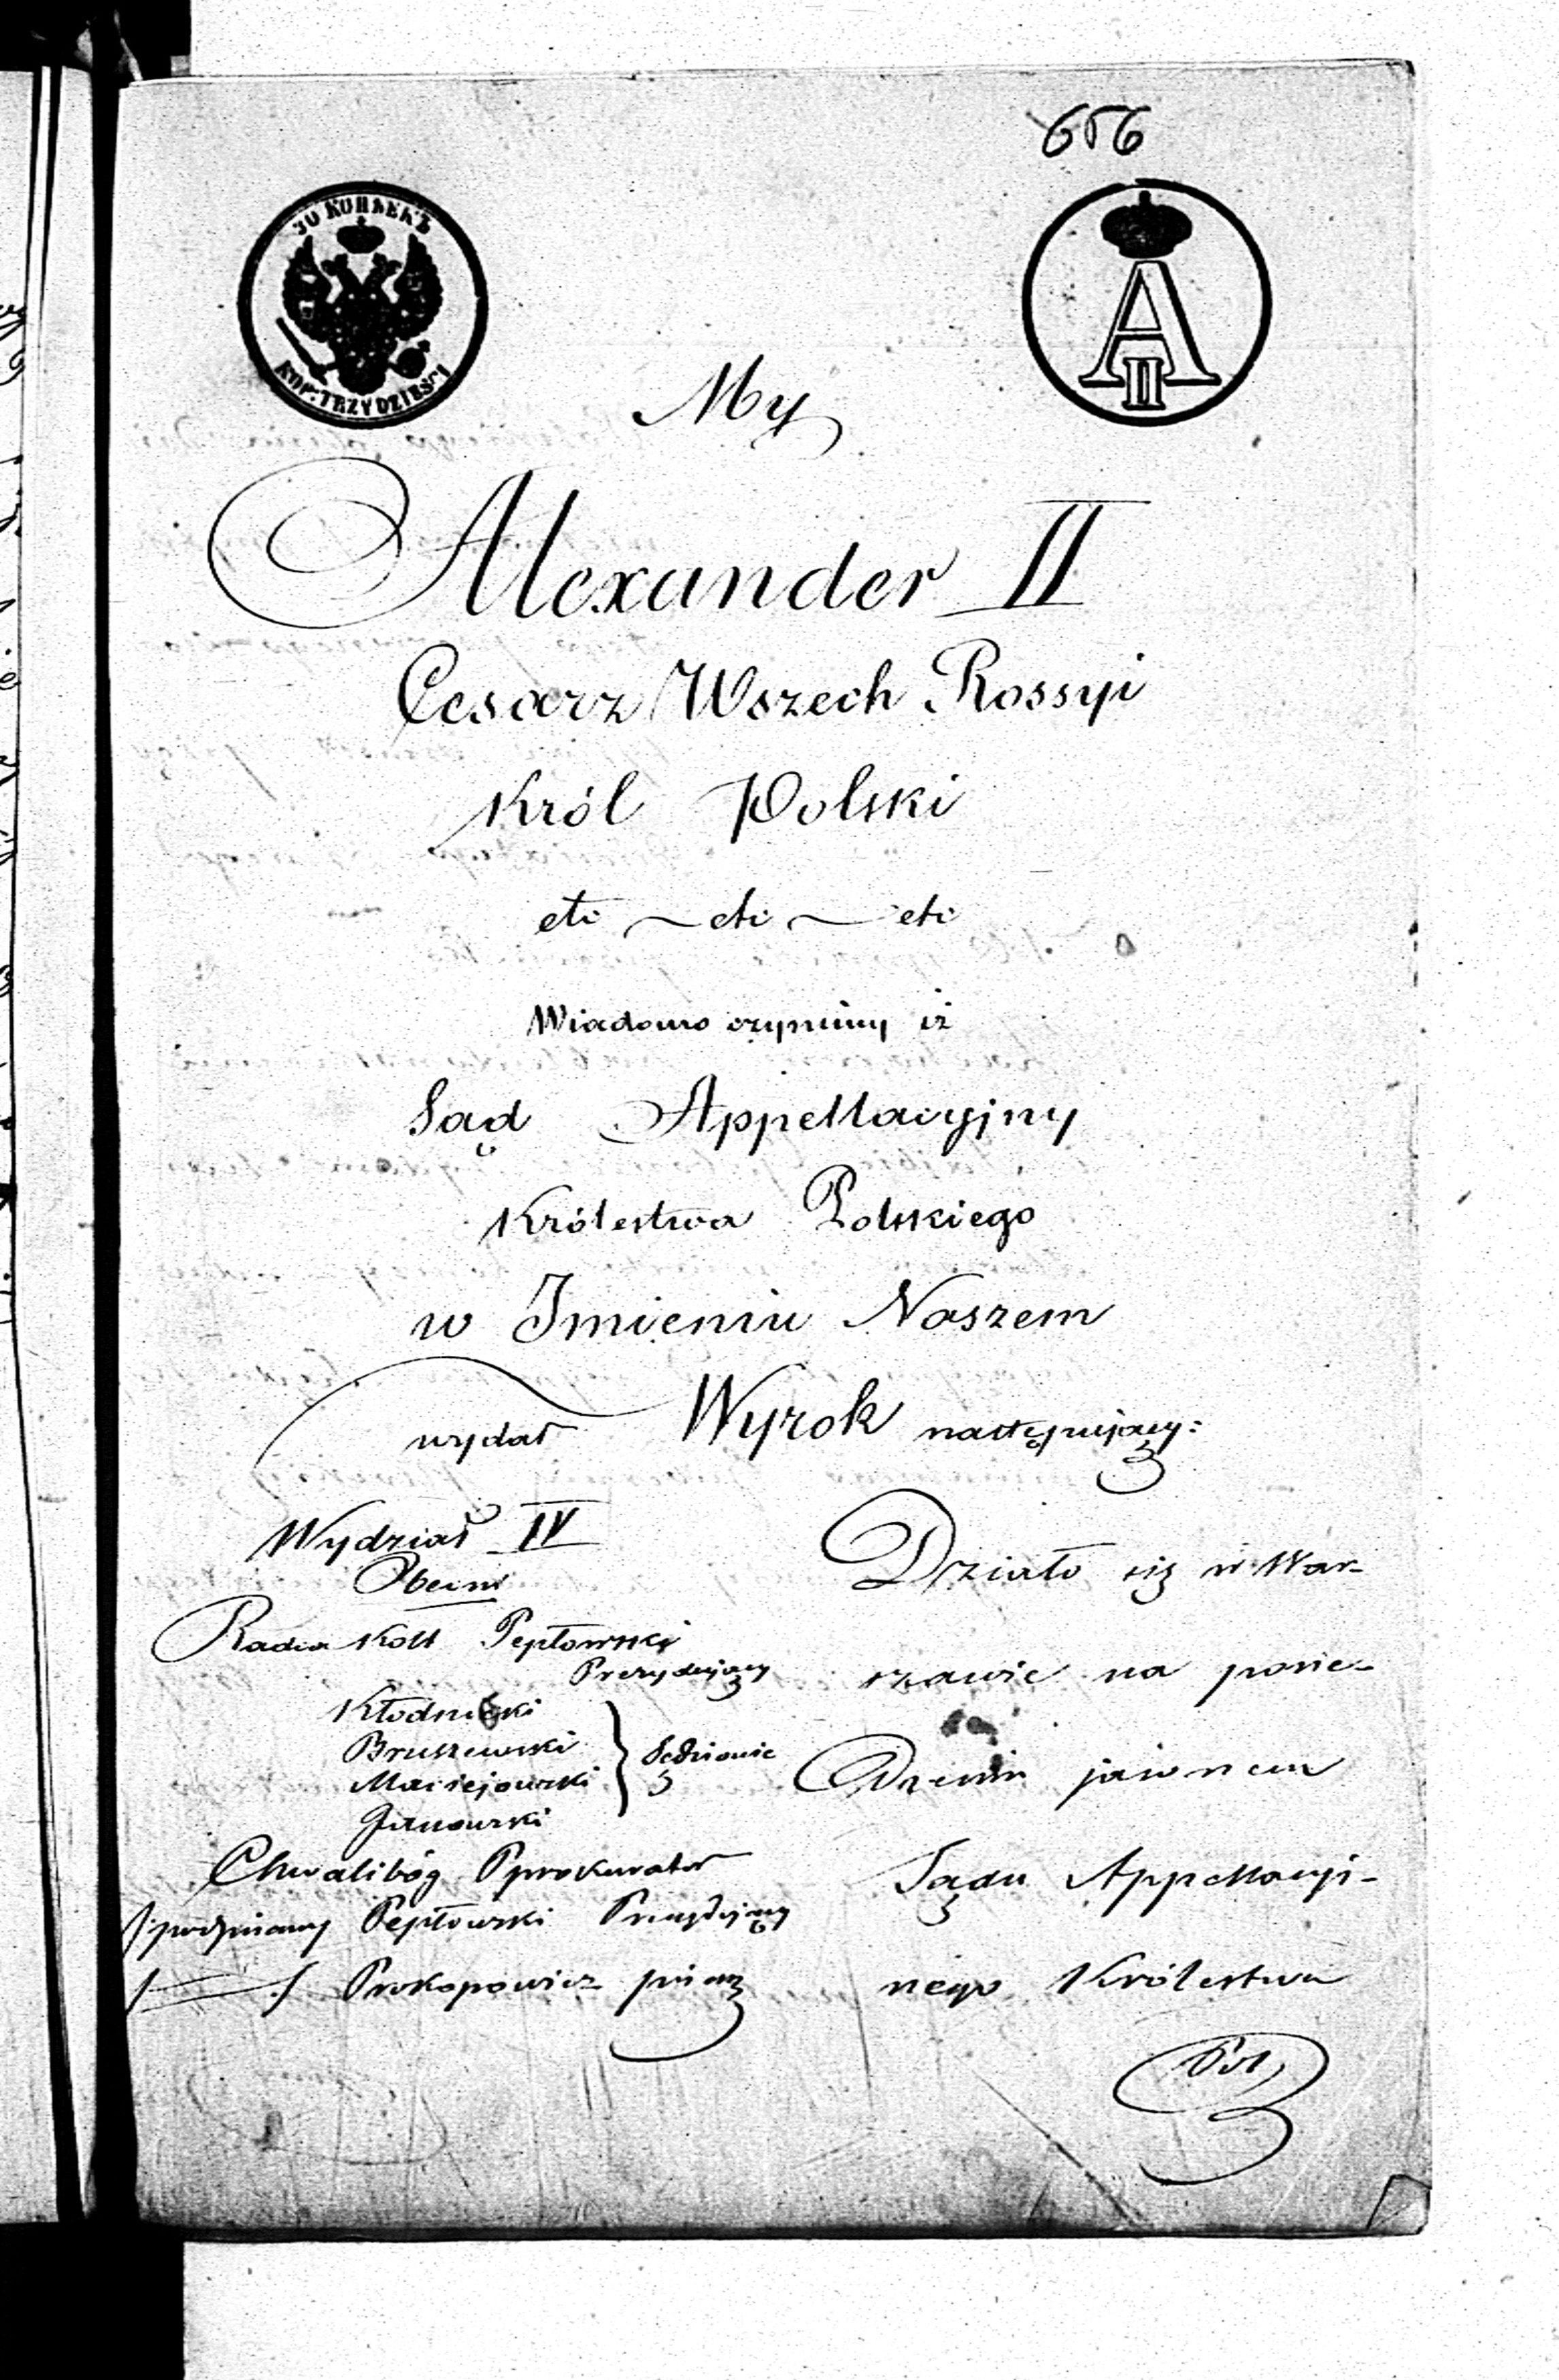 656
30 КОПѢЕКЪ
KOP: TRZYDZIEŚCI
A II
My
Alexander II
Cesarz Wszech Rossyi
Król Polski
etc etc etc
Wiadomo czynimy iż
Sąd Appellacyjny
Królestwa Polskiego
w Imieniu Naszem
wydał Wyrok następujący:
Wydział IV
Obecni
Radca Koll Pepłowski
Prezydujący
Kłodnicki
Bruszewski
Maciejowski
Janowski
Sędziowie
Chwalibóg Pprokurator
podpisany Pepłowski Prezydujący
Prokopowicz pisarz
Działo się w War-
szawie na posie-
dzeniu jawnem
Sądu Appellacyj-
nego Królestwa
Pol